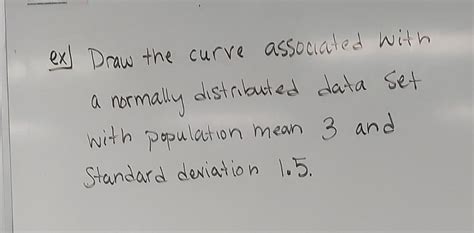 ex] Draw the curve associated with
a normally distributed data set
with population mean 3 and
Standard deviation 1.5.